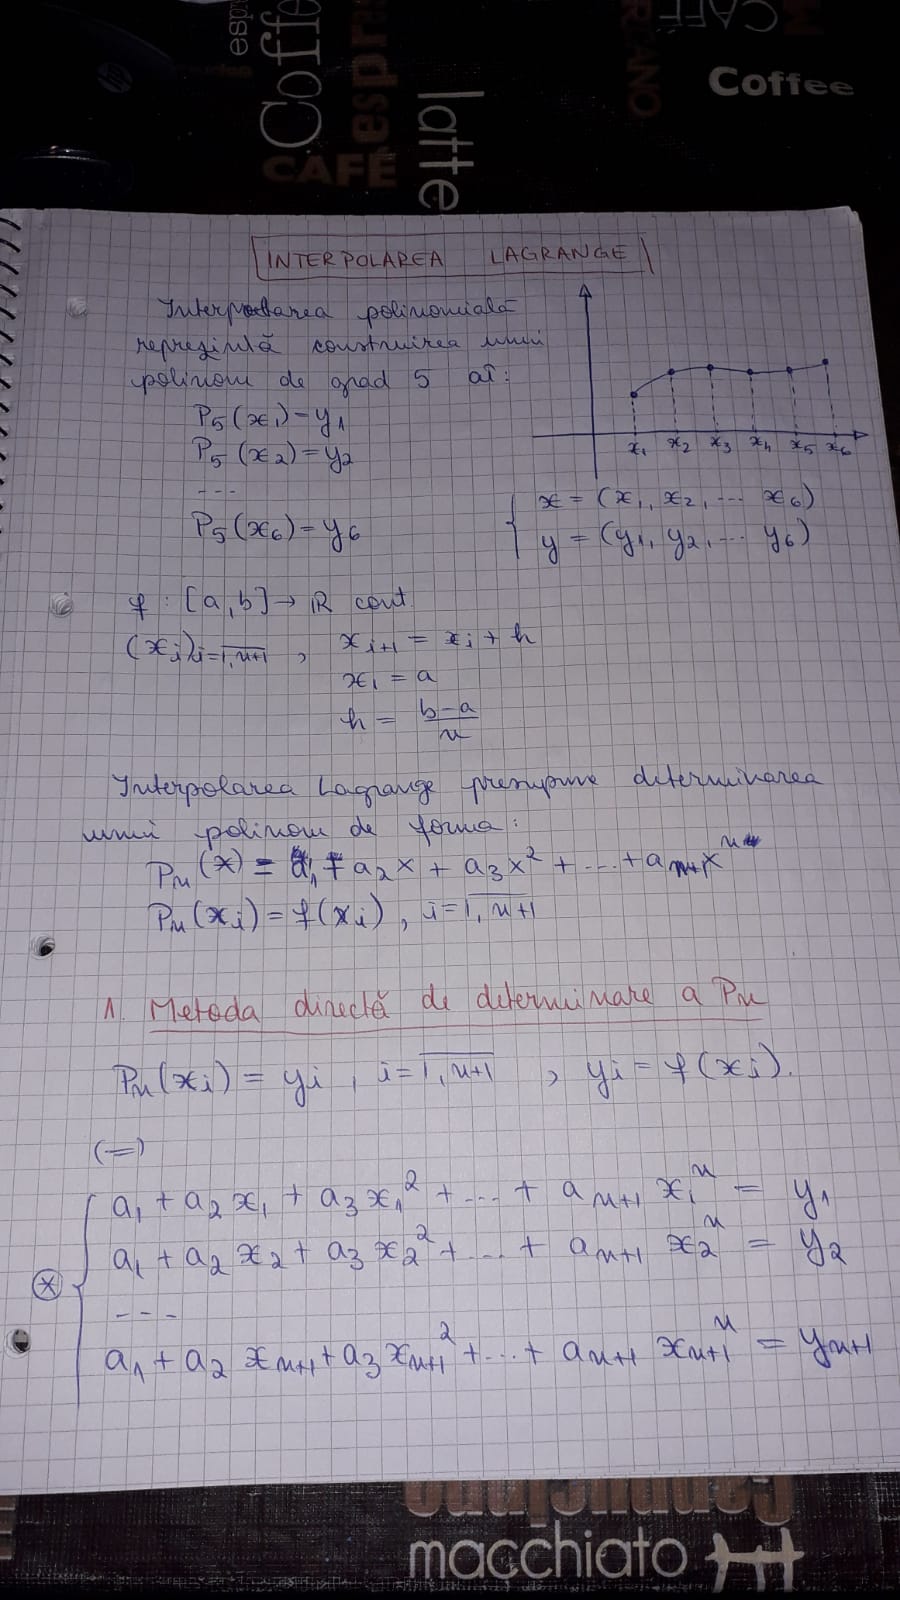 espr
Coffe
espr
CAFÉ
latte
CAFÉ
Coffee
INTERPOLAREA LAGRANGE
Interpolarea polinomială
reprezintă construirea unui
polinom de grad 5 aî:
P₅(x₁)=y₁
P₅(x₂)=y₂
---
P₅(x₆)=y₆
x₁ x₂ x₃ x₄ x₅ x₆
x = (x₁, x₂, ... x₆)
y = (y₁, y₂, ... y₆)
f : [a,b] → ℝ cont.
(xᵢ)ᵢ₌1,n+1 , xᵢ₊₁ = xᵢ + h
x₁ = a
h = (b-a)/n
Interpolarea Lagrange presupune determinarea
unui polinom de forma:
Pₙ(x) = a₁ + a₂x + a₃x² + ... + aₙ₊₁xⁿ
Pₙ(xᵢ) = f(xᵢ), i=1,n+1
1. Metoda directă de determinare a Pₙ
Pₙ(xᵢ) = yᵢ , i=1,n+1 , yᵢ = f(xᵢ).
(=)
a₁ + a₂x₁ + a₃x₁² + ... + aₙ₊₁ x₁ⁿ = y₁
a₁ + a₂x₂ + a₃x₂² + ... + aₙ₊₁ x₂ⁿ = y₂
(*)
---
a₁ + a₂xₙ₊₁ + a₃xₙ₊₁² + ... + aₙ₊₁ xₙ₊₁ⁿ = yₙ₊₁
macchiato